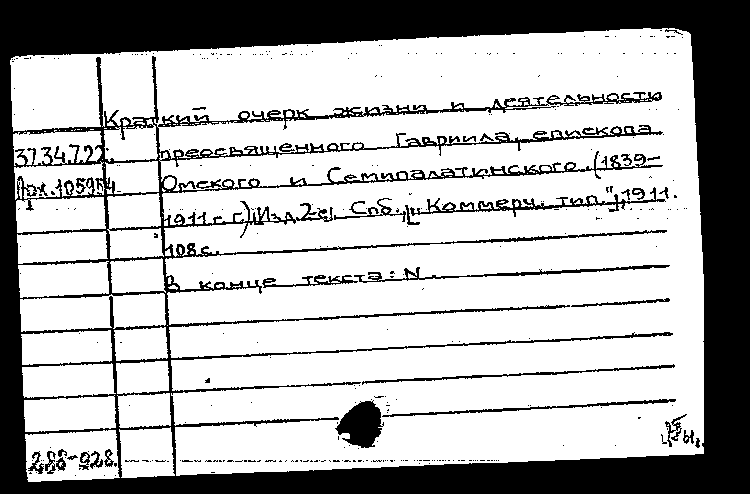 Краткий очерк жизни и деятельности
37.34.7.22. преосвященного Гавриила, епископа
Арх.105954 Омского и Семипалатинского. (1839-
1911 г.г.) Изд. 2-е, Спб., "Коммерч. тип.", 1911.
108 с.
В конце текста: N.
288-928.